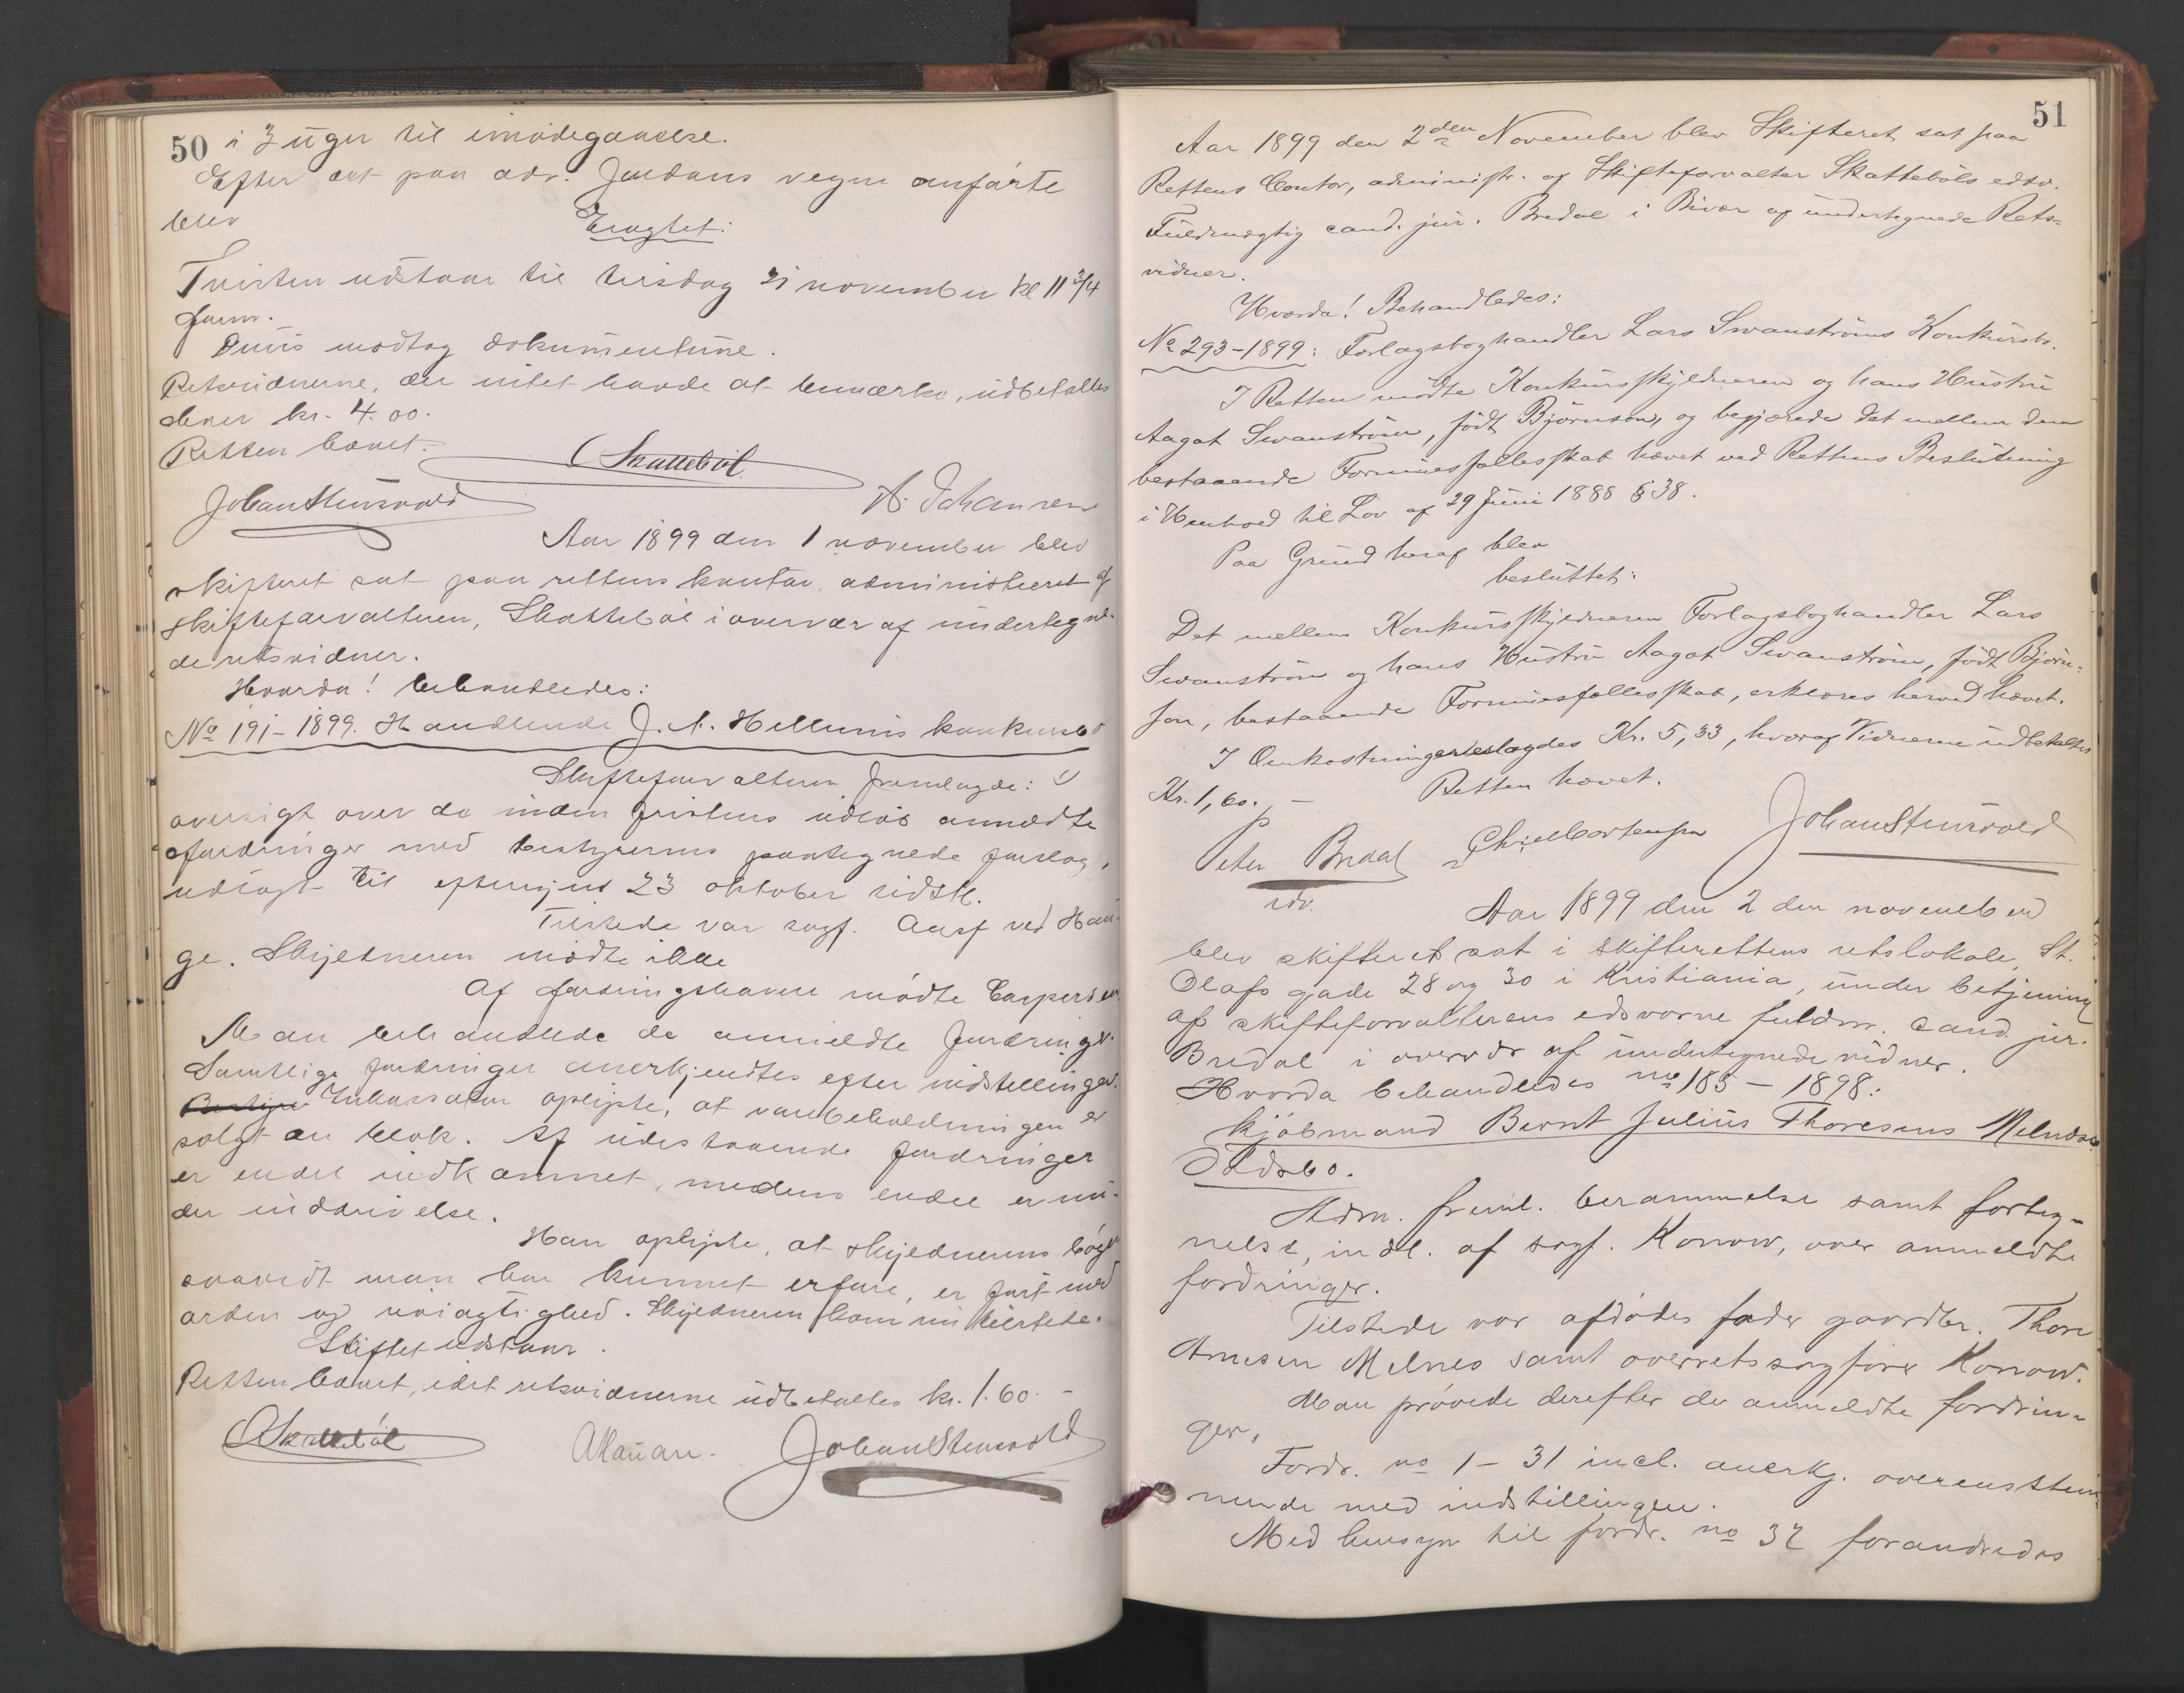 50
i 3 uger til imødegaaelse.
Efter det paa adv. Jordans vegne anførte
blev
Eragtet:
Tvisten udstaar til tirsdag 21 november kl 11 3/4
form.
Duus modtog dokumenterne.
Retsvidnerne, der intet havde at bemærke, udbetaltes
hver kr. 4.00.
Retten hævet.
Skattebøl
Johan Stensvold
A. Johansen
Aar 1899 den 1 november blev
skifteret sat paa rettens kontor administreret af
skifteforvalteren, Skattebøl i overvær af undertegne-
de retsvidner.
Hvorda! behandledes:
No 191-1899. Handlende J. A. Hellums konkursbo
Skifteforvalteren fremlagde:
oversigt over de inden fristens udløb anmeldte
fordringer med bestyrerens paategnede forslag,
udlagt til eftersyn 23 oktober sidstl.
Tilstede var sagf. Aarf ved Hau-
ge. Skyldneren mødte ikke
Af fordringshavere mødte Caspersen.
Man behandlede de anmeldte fordringer.
Samtlige fordringer anerkjendtes efter indstillingen.
Inkassator oplyste, at varebeholdningen er
solgt en blok. Af udestaaende fordringer
er endel indkommet, medens endel er un-
der inddrivelse.
Han oplyste, at skyldnerens bøger
saavidt man har kunnet erfare, er ført med
orden og nøiagtighed. Skyldneren kom nu tilstede.
Skiftet udstaar.
Retten hævet, idet retsvidnerne udbetaltes kr. 1.60. -
Skattebøl
Johan Stensvold
51
Aar 1899 den 2den November blev Skifteret sat paa
Rettens Contor, administr. af Skifteforvalter Skattebøls edsv.
Fuldmægtig cand. jur. Bredal i Bivær af undertegnede Rets-
vidner.
Hvorda! Behandledes:
No 293-1899: Forlagsboghandler Lars Swanstrøms Konkursbo.
I Retten mødte Konkursskyldneren og hans Hustru
Aagot Swanstrøm, født Bjørnson, og begjærede det mellem dem
bestaaende Formuesfællesskab hævet ved Rettens Beslutning
i Henhold til Lov af 29 Juni 1888 § 38.
Paa Grund heraf blev
besluttet:
Det mellem Konkursskyldneren Forlagsboghandler Lars
Swanstrøm og hans Hustru Aagot Swanstrøm, født Bjørn-
son, bestaaende Formuesfællesskab, erklæres herved hævet.
I Omkostninger Kr. 5,33, hvoraf Vidnerne udbetaltes
Kr. 1,60. -
Retten hævet.
Peter Bredal
edsv.
Johan Stensvold
Aar 1899 den 2 den november
blev skifteret sat i skifterettens retslokale, St.
Olafs gade 28 og 30 i Kristiania, under betjening
af skifteforvalterens edsvorne fuldm. cand. jur.
Bredal i overvær af undertegnede vidner.
Hvorda behandledes no 185 - 1898:
Kjøbmand Bernt Julius Thoresens Melnæs
Dødsbo.
Adm. freml. berammelse samt forteg-
nelse, indl. af sagf. Konow, over anmeldte
fordringer.
Tilstede var afdødes fader gaardbr. Thore
Arnesen Melnes samt overretssagfører Konow.
Man prøvede derefter de anmeldte fordrin-
ger,
Fordr. no 1 - 31 incl. anerkj. overensstem-
mende med indstillingen.
Med hensyn til fordr. no 32 forandredes